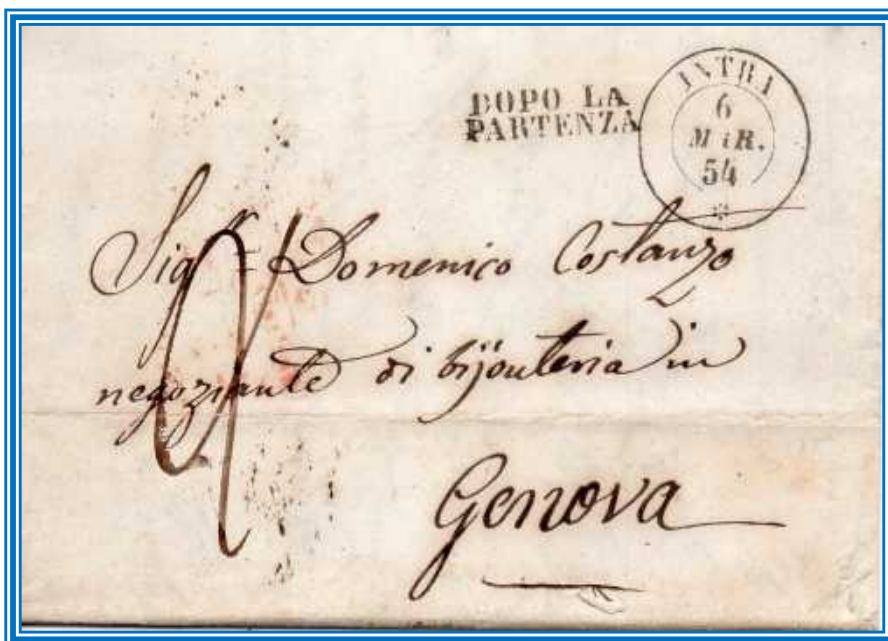 DOPO LA
PARTENZA
INTRA
6
MAR.
54
Sigr Domenico Costanzo
negoziante di bijouteria in
Genova